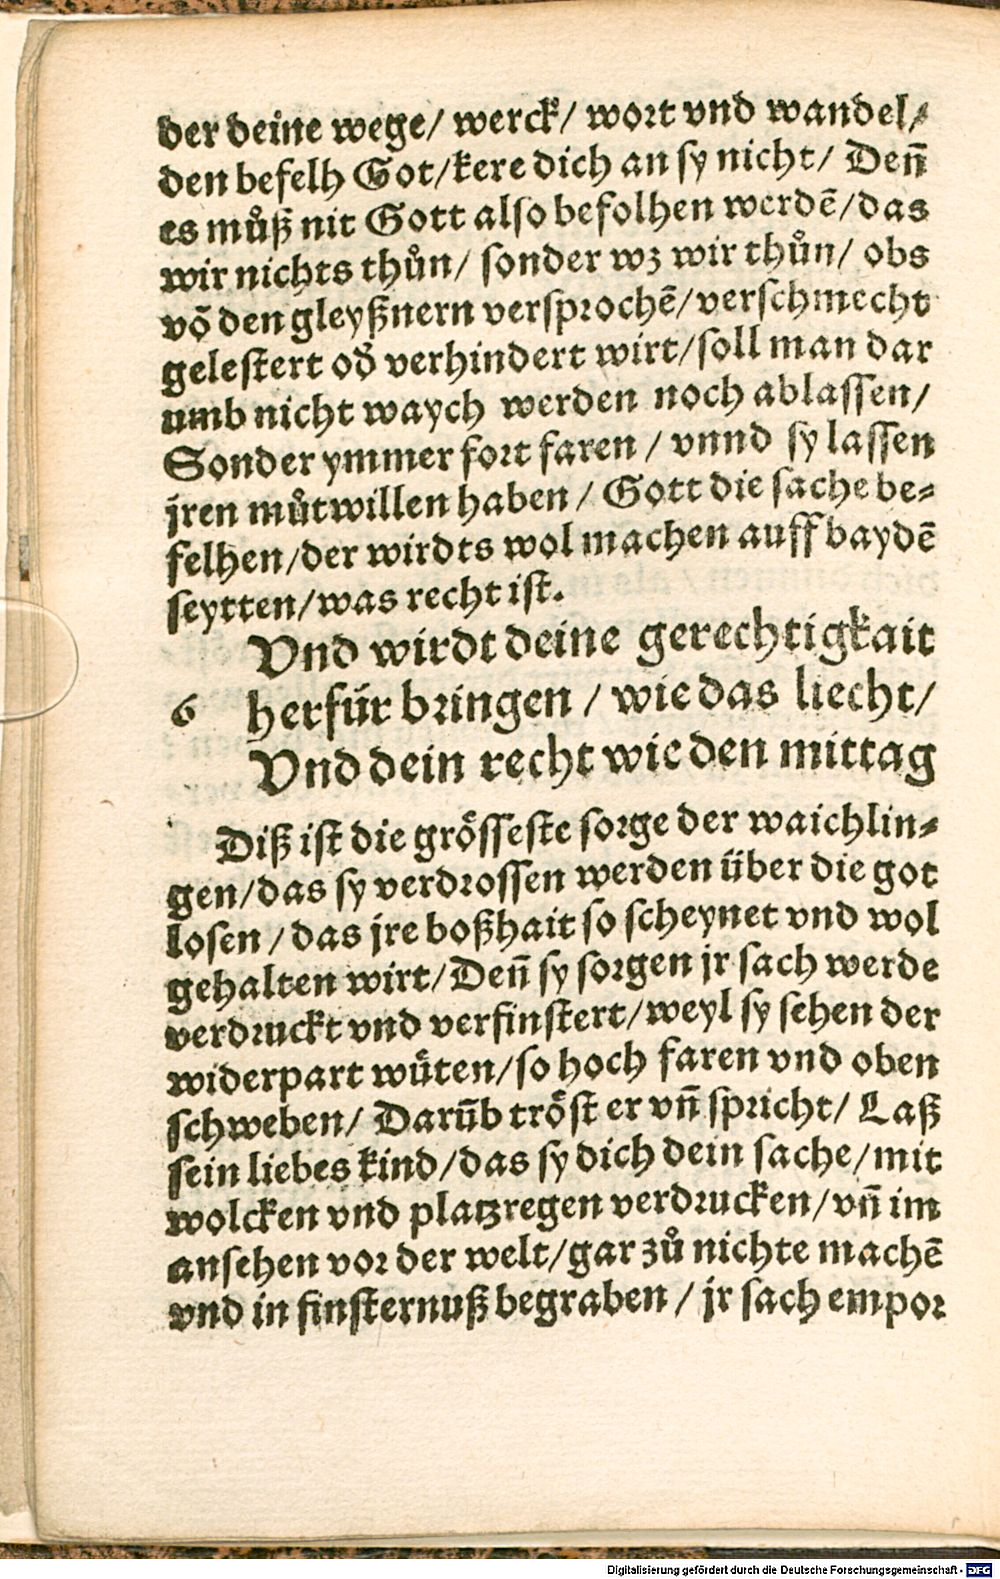 der deine wege/ werck/ wort vnd wandel/
den befelh Got/kere dich an sy nicht/ Den̄
es můß nit Gott also befolhen werdē/das
wir nichts thůn/ sonder wz wir thůn/ obs
võ den gleyßnern versprochē/verschmecht
gelestert od̾ verhindert wirt/soll man dar
umb nicht waych werden noch ablassen/
Sonder ymmer fort faren / vnnd sy lassen
jren můtwillen haben / Gott die sache be-
felhen/der wirdts wol machen auff baydē
seytten/was recht ist.
Vnd wirdt deine gerechtigkait
6 herfür bringen / wie das liecht/
Vnd dein recht wie den mittag
Diß ist die grösseste sorge der waichlin-
gen/das sy verdrossen werden über die got
losen / das jre boßhait so scheynet vnd wol
gehalten wirt/Den̄ sy sorgen jr sach werde
verdruckt vnd verfinstert/weyl sy sehen der
widerpart wüten/so hoch faren vnd oben
schweben/ Darūb tröst er vn̄ spricht/ Laß
sein liebes kind/das sy dich dein sache/mit
wolcken vnd platzregen verdrucken/vn̄ im
ansehen vor der welt/gar zů nichte machē
vnd in finsternuß begraben / jr sach empor
Digitalisierung gefördert durch die Deutsche Forschungsgemeinschaft - DFG